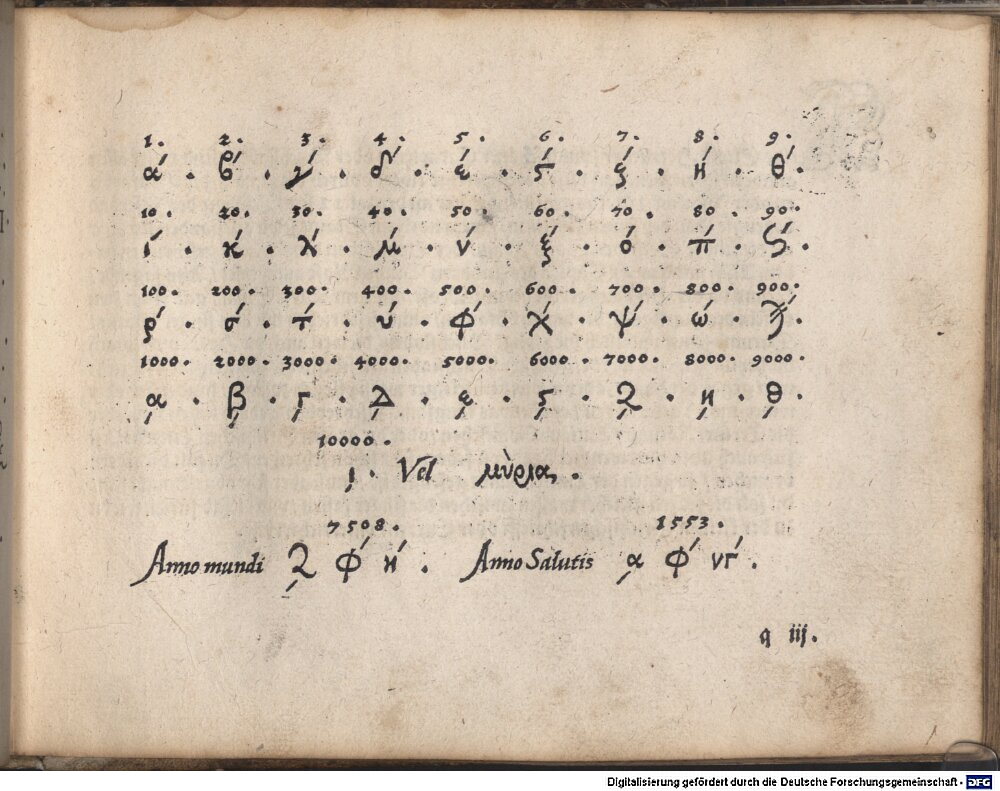 1. 2. 3. 4. 5. 6. 7. 8. 9.
ά . ϐ́ . γ́ . δ́ . έ . ϛ́ . ξ́ . ή . θ́ .
10. 20. 30. 40. 50. 60. 70. 80. 90.
ί . κ́ . λ́ . μ́ . ν́ . ξ́ . ό . π́ . ϟ́ .
100. 200. 300. 400. 500. 600. 700. 800. 900.
ῤ . σ́ . τ́ . ύ . φ́ . χ́ . ψ́ . ώ . ϡ́ .
1000. 2000. 3000. 4000. 5000. 6000. 7000. 8000. 9000.
͵α . ͵β . ͵γ . ͵Δ . ͵ε . ͵ϛ . ͵ζ . ͵η . ͵θ .
10000.
͵ι . Vel μύριας .
7508. 1553.
Anno mundi ͵ζ φ́ ή . Anno Salutis ͵α φ́ νγ́ .
q iij.
Digitalisierung gefördert durch die Deutsche Forschungsgemeinschaft - DFG